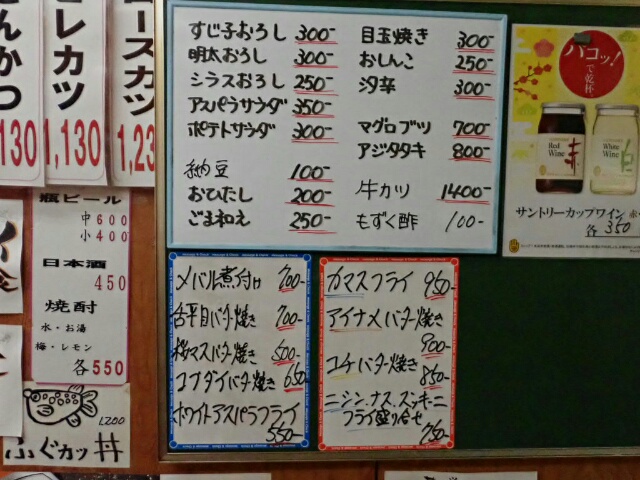 ロースカツ
1,23
ヒレカツ
1,130
んかつ
130
瓶ビール
中600
小400
日本酒
450
焼酎
水・お湯
梅・レモン
各550
1,200
ふぐカツ丼
すじ子おろし 300-
明太おろし 300-
シラスおろし 250-
アスパラサラダ 350-
ポテトサラダ 300-
納豆 100-
おひたし 200-
ごま和え 250-
目玉焼き 300-
おしんこ 250-
汐辛 300-
マグロブツ 700-
アジタタキ 800-
牛カツ 1400-
もずく酢 100-
メバル煮付け 700-
舌平目バター焼き 700-
桜マスバター焼き 500-
コブダイバター焼き 650-
ホワイトアスパラフライ
550-
カマスフライ 950-
アイナメバター焼き
900-
コチバター焼き
850-
ニシン、ナス、ズッキーニ
フライ盛り合せ
750-
パコッ!
で乾杯
Red
Wine
赤
White
Wine
サントリーカップワイン 赤・
各350